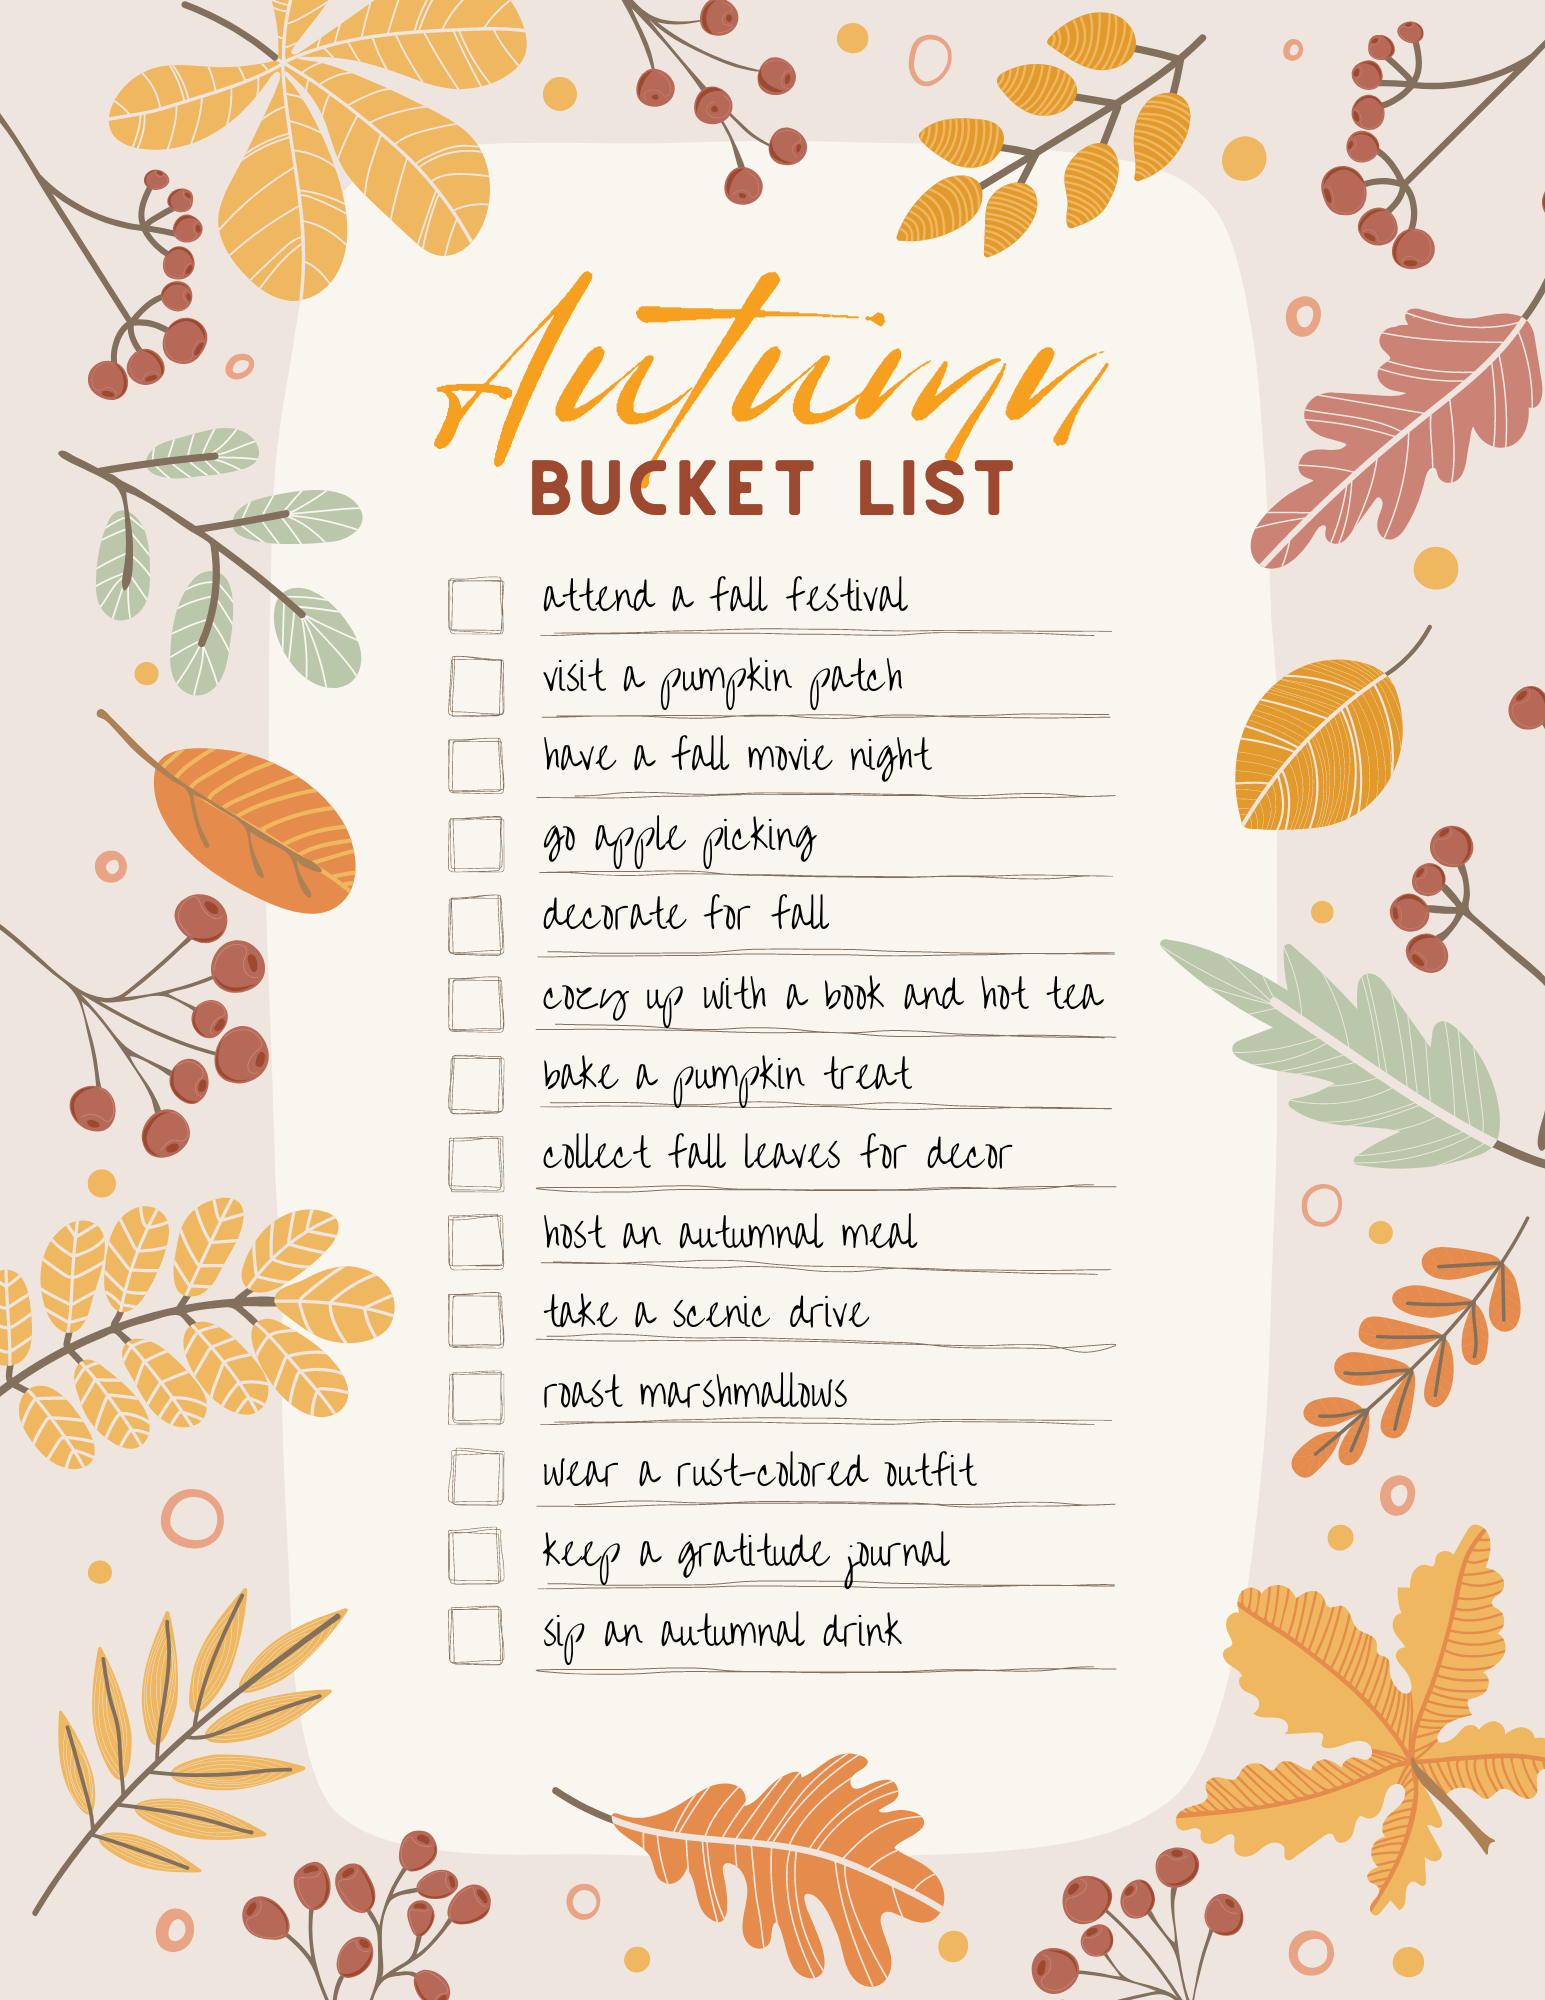 Autumn
BUCKET LIST
attend a fall festival
visit a pumpkin patch
have a fall movie night
go apple picking
decorate for fall
cozy up with a book and hot tea
bake a pumpkin treat
collect fall leaves for decor
host an autumnal meal
take a scenic drive
roast marshmallows
wear a rust-colored outfit
keep a gratitude journal
sip an autumnal drink